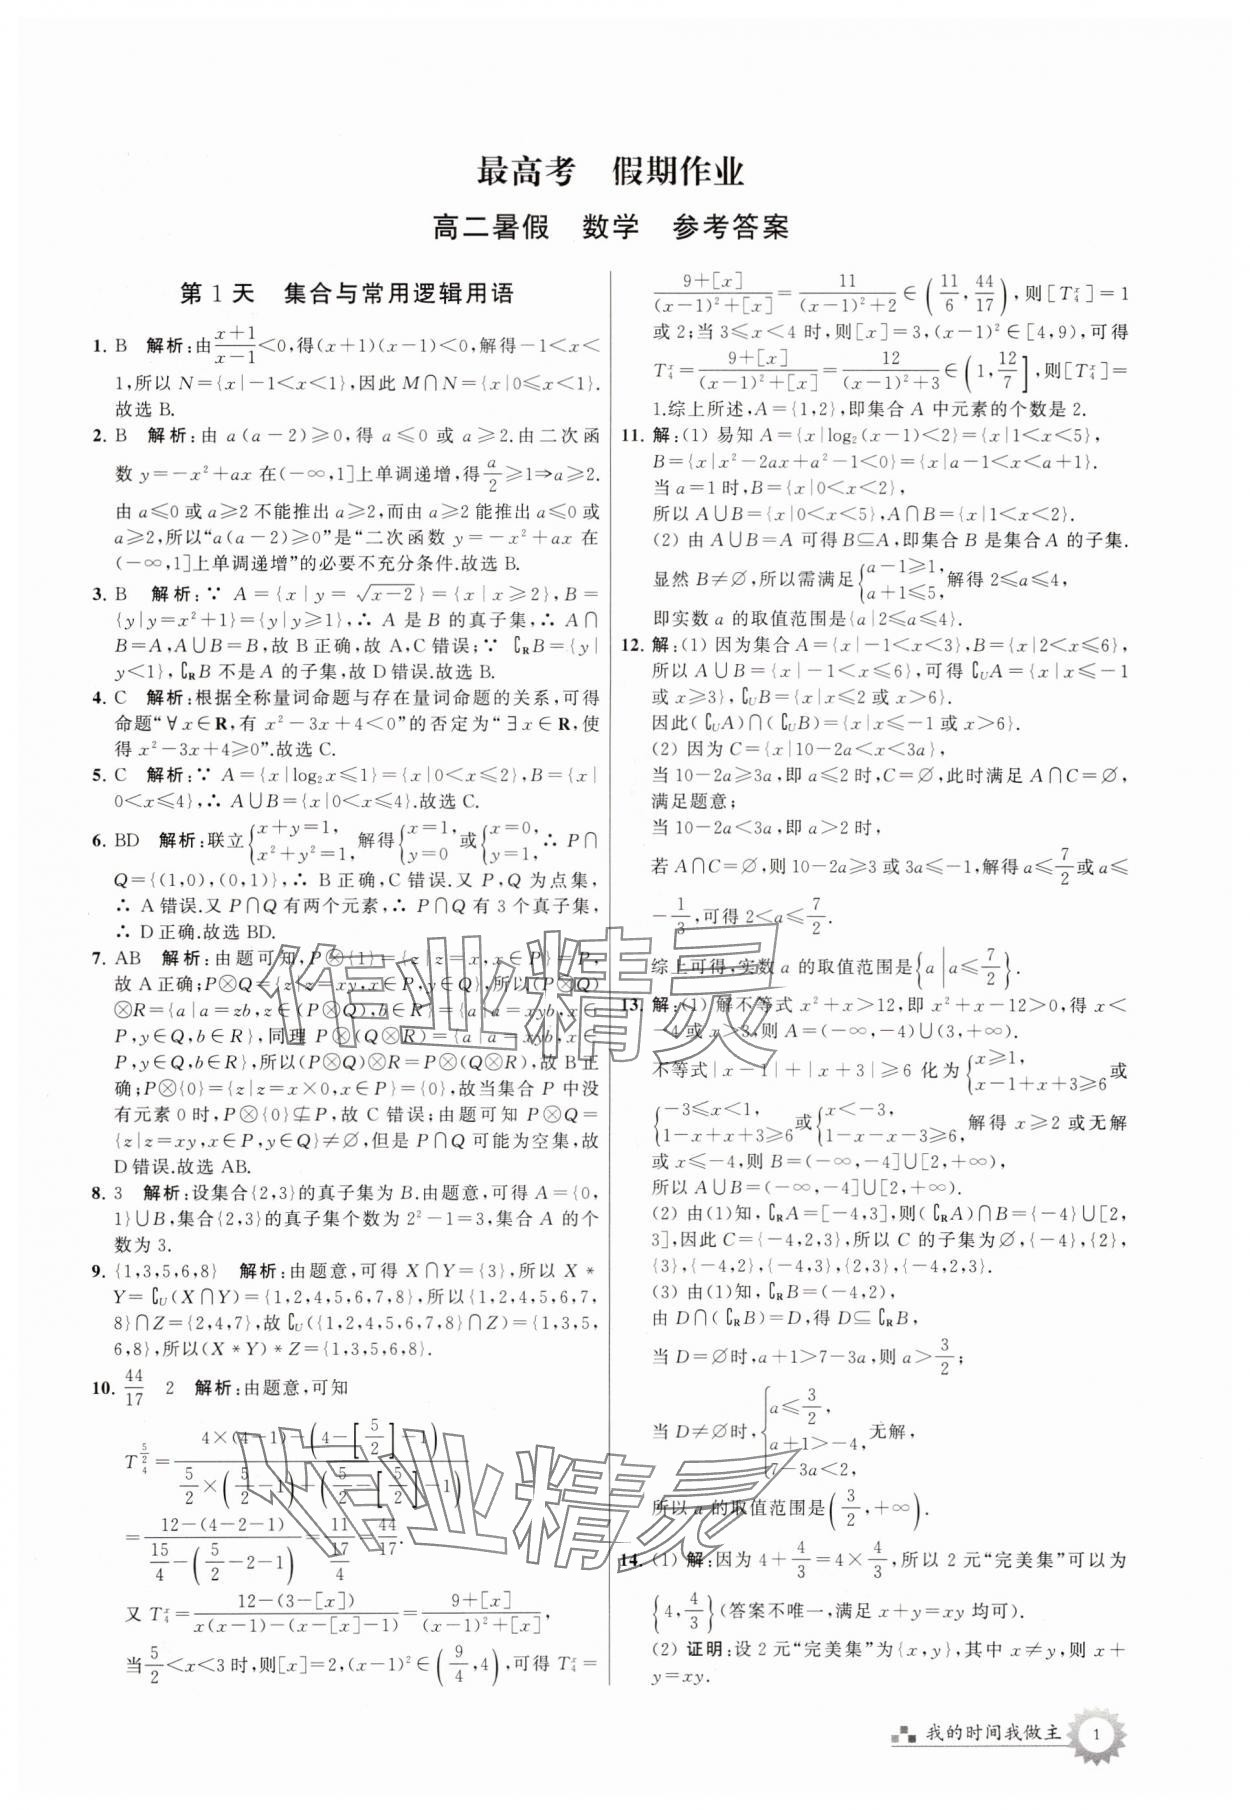 最高考　假期作业
高二暑假　数学　参考答案
第 1 天　集合与常用逻辑用语
1. B　解析:由\frac{x+1}{x-1}<0,得(x+1)(x-1)<0,解得-1<x<
1,所以 N={x|-1<x<1},因此 M∩N={x|0⩽x<1}.
故选 B.
2. B　解析:由 a(a-2)⩾0,得 a⩽0 或 a⩾2.由二次函
数 y=-x²+ax 在(-∞,1]上单调递增,得\frac{a}{2}⩾1⇒a⩾2.
由 a⩽0 或 a⩾2 不能推出 a⩾2,而由 a⩾2 能推出 a⩽0 或
a⩾2,所以“a(a-2)⩾0”是“二次函数 y=-x²+ax 在
(-∞,1]上单调递增”的必要不充分条件.故选 B.
3. B　解析:∵ A={x|y=\sqrt{x-2}}={x|x⩾2},B=
{y|y=x²+1}={y|y⩾1},∴ A 是 B 的真子集,∴ A∩
B=A,A∪B=B,故 B 正确,故 A,C 错误;∵ ∁RB={y|
y<1},∁RB 不是 A 的子集,故 D 错误.故选 B.
4. C　解析:根据全称量词命题与存在量词命题的关系,可得
命题“∀x∈R,有 x²-3x+4<0”的否定为“∃x∈R,使
得 x²-3x+4⩾0”.故选 C.
5. C　解析:∵ A={x|log₂x⩽1}={x|0<x⩽2},B={x|
0<x⩽4},∴ A∪B={x|0<x⩽4}.故选 C.
6. BD　解析:联立{x+y=1, x²+y²=1,解得{x=1, y=0或{x=0, y=1,∴ P∩
Q={(1,0),(0,1)},∴ B 正确,C 错误.又 P,Q 为点集,
∴ A 错误.又 P∩Q 有两个元素,∴ P∩Q 有 3 个真子集,
∴ D 正确.故选 BD.
7. AB　解析:由题可知,P⊗{1}={z|z=x,x∈P}=P,
故 A 正确;P⊗Q={z|z=xy,x∈P,y∈Q},所以(P⊗Q)
⊗R={a|a=zb,z∈(P⊗Q),b∈R}={a|a=xyb,x∈
P,y∈Q,b∈R},同理 P⊗(Q⊗R)={a|a=xyb,x∈
P,y∈Q,b∈R},所以(P⊗Q)⊗R=P⊗(Q⊗R),故 B 正
确;P⊗{0}={z|z=x×0,x∈P}={0},故当集合 P 中没
有元素 0 时,P⊗{0}⊈P,故 C 错误;由题可知 P⊗Q=
{z|z=xy,x∈P,y∈Q}≠∅,但是 P∩Q 可能为空集,故
D 错误.故选 AB.
8. 3　解析:设集合{2,3}的真子集为 B.由题意,可得 A={0,
1}∪B,集合{2,3}的真子集个数为 2²-1=3,集合 A 的个
数为 3.
9. {1,3,5,6,8}　解析:由题意,可得 X∩Y={3},所以 X*
Y=∁U(X∩Y)={1,2,4,5,6,7,8},所以{1,2,4,5,6,7,
8}∩Z={2,4,7},故∁U({1,2,4,5,6,7,8}∩Z)={1,3,5,
6,8},所以(X*Y)*Z={1,3,5,6,8}.
10. \frac{44}{17}　2　解析:由题意,可知
T_4^{\frac{5}{2}}=\frac{4×(4-1)-(4-[\frac{5}{2}]-1)}{\frac{5}{2}×(\frac{5}{2}-1)-(\frac{5}{2}-[\frac{5}{2}]-1)}
=\frac{12-(4-2-1)}{\frac{15}{4}-(\frac{5}{2}-2-1)}=\frac{11}{\frac{17}{4}}=\frac{44}{17}.
又 T_4^x=\frac{12-(3-[x])}{x(x-1)-(x-[x]-1)}=\frac{9+[x]}{(x-1)²+[x]},
当\frac{5}{2}<x<3 时,则[x]=2,(x-1)²∈(\frac{9}{4},4),可得 T_4^x=
\frac{9+[x]}{(x-1)²+[x]}=\frac{11}{(x-1)²+2}∈(\frac{11}{6},\frac{44}{17}),则[T_4^x]=1
或2;当 3⩽x<4 时,则[x]=3,(x-1)²∈[4,9),可得
T_4^x=\frac{9+[x]}{(x-1)²+[x]}=\frac{12}{(x-1)²+3}∈(1,\frac{12}{7}],则[T_4^x]=
1.综上所述,A={1,2},即集合 A 中元素的个数是 2.
11. 解:(1) 易知 A={x|log₂(x-1)<2}={x|1<x<5},
B={x|x²-2ax+a²-1<0}={x|a-1<x<a+1}.
当 a=1 时,B={x|0<x<2},
所以 A∪B={x|0<x<5},A∩B={x|1<x<2}.
(2) 由 A∪B=A 可得 B⊆A,即集合 B 是集合 A 的子集.
显然 B≠∅,所以需满足{a-1⩾1, a+1⩽5,解得 2⩽a⩽4,
即实数 a 的取值范围是{a|2⩽a⩽4}.
12. 解:(1) 因为集合 A={x|-1<x<3},B={x|2<x⩽6},
所以 A∪B={x|-1<x⩽6},可得∁UA={x|x⩽-1
或 x⩾3},∁UB={x|x⩽2 或 x>6}.
因此(∁UA)∩(∁UB)={x|x⩽-1 或 x>6}.
(2) 因为 C={x|10-2a<x<3a},
当 10-2a⩾3a,即 a⩽2 时,C=∅,此时满足 A∩C=∅,
满足题意;
当 10-2a<3a,即 a>2 时,
若 A∩C=∅,则 10-2a⩾3 或 3a⩽-1,解得 a⩽\frac{7}{2}或 a⩽
-\frac{1}{3},可得 2<a⩽\frac{7}{2}.
综上可得,实数 a 的取值范围是{a|a⩽\frac{7}{2}}.
13. 解:(1) 解不等式 x²+x>12,即 x²+x-12>0,得 x<
-4或 x>3,则 A=(-∞,-4)∪(3,+∞).
不等式|x-1|+|x+3|⩾6 化为{x⩾1, x-1+x+3⩾6或
{-3⩽x<1, 1-x+x+3⩾6或{x<-3, 1-x-x-3⩾6,解得 x⩾2 或无解
或 x⩽-4,则 B=(-∞,-4]∪[2,+∞),
所以 A∪B=(-∞,-4]∪[2,+∞).
(2) 由(1)知,∁RA=[-4,3],则(∁RA)∩B={-4}∪[2,
3],因此 C={-4,2,3},所以 C 的子集为∅,{-4},{2},
{3},{-4,2},{-4,3},{2,3},{-4,2,3}.
(3) 由(1)知,∁RB=(-4,2),
由 D∩(∁RB)=D,得 D⊆∁RB,
当 D=∅时,a+1>7-3a,则 a>\frac{3}{2};
当 D≠∅时,{a⩽\frac{3}{2}, a+1>-4, 7-3a<2,无解,
所以 a 的取值范围是(\frac{3}{2},+∞).
14. (1) 解:因为 4+\frac{4}{3}=4×\frac{4}{3},所以 2 元“完美集”可以为
{4,\frac{4}{3}}(答案不唯一,满足 x+y=xy 均可).
(2) 证明:设 2 元“完美集”为{x,y},其中 x≠y,则 x+
y=xy.
作业精灵
作业精灵
我的时间我做主　1